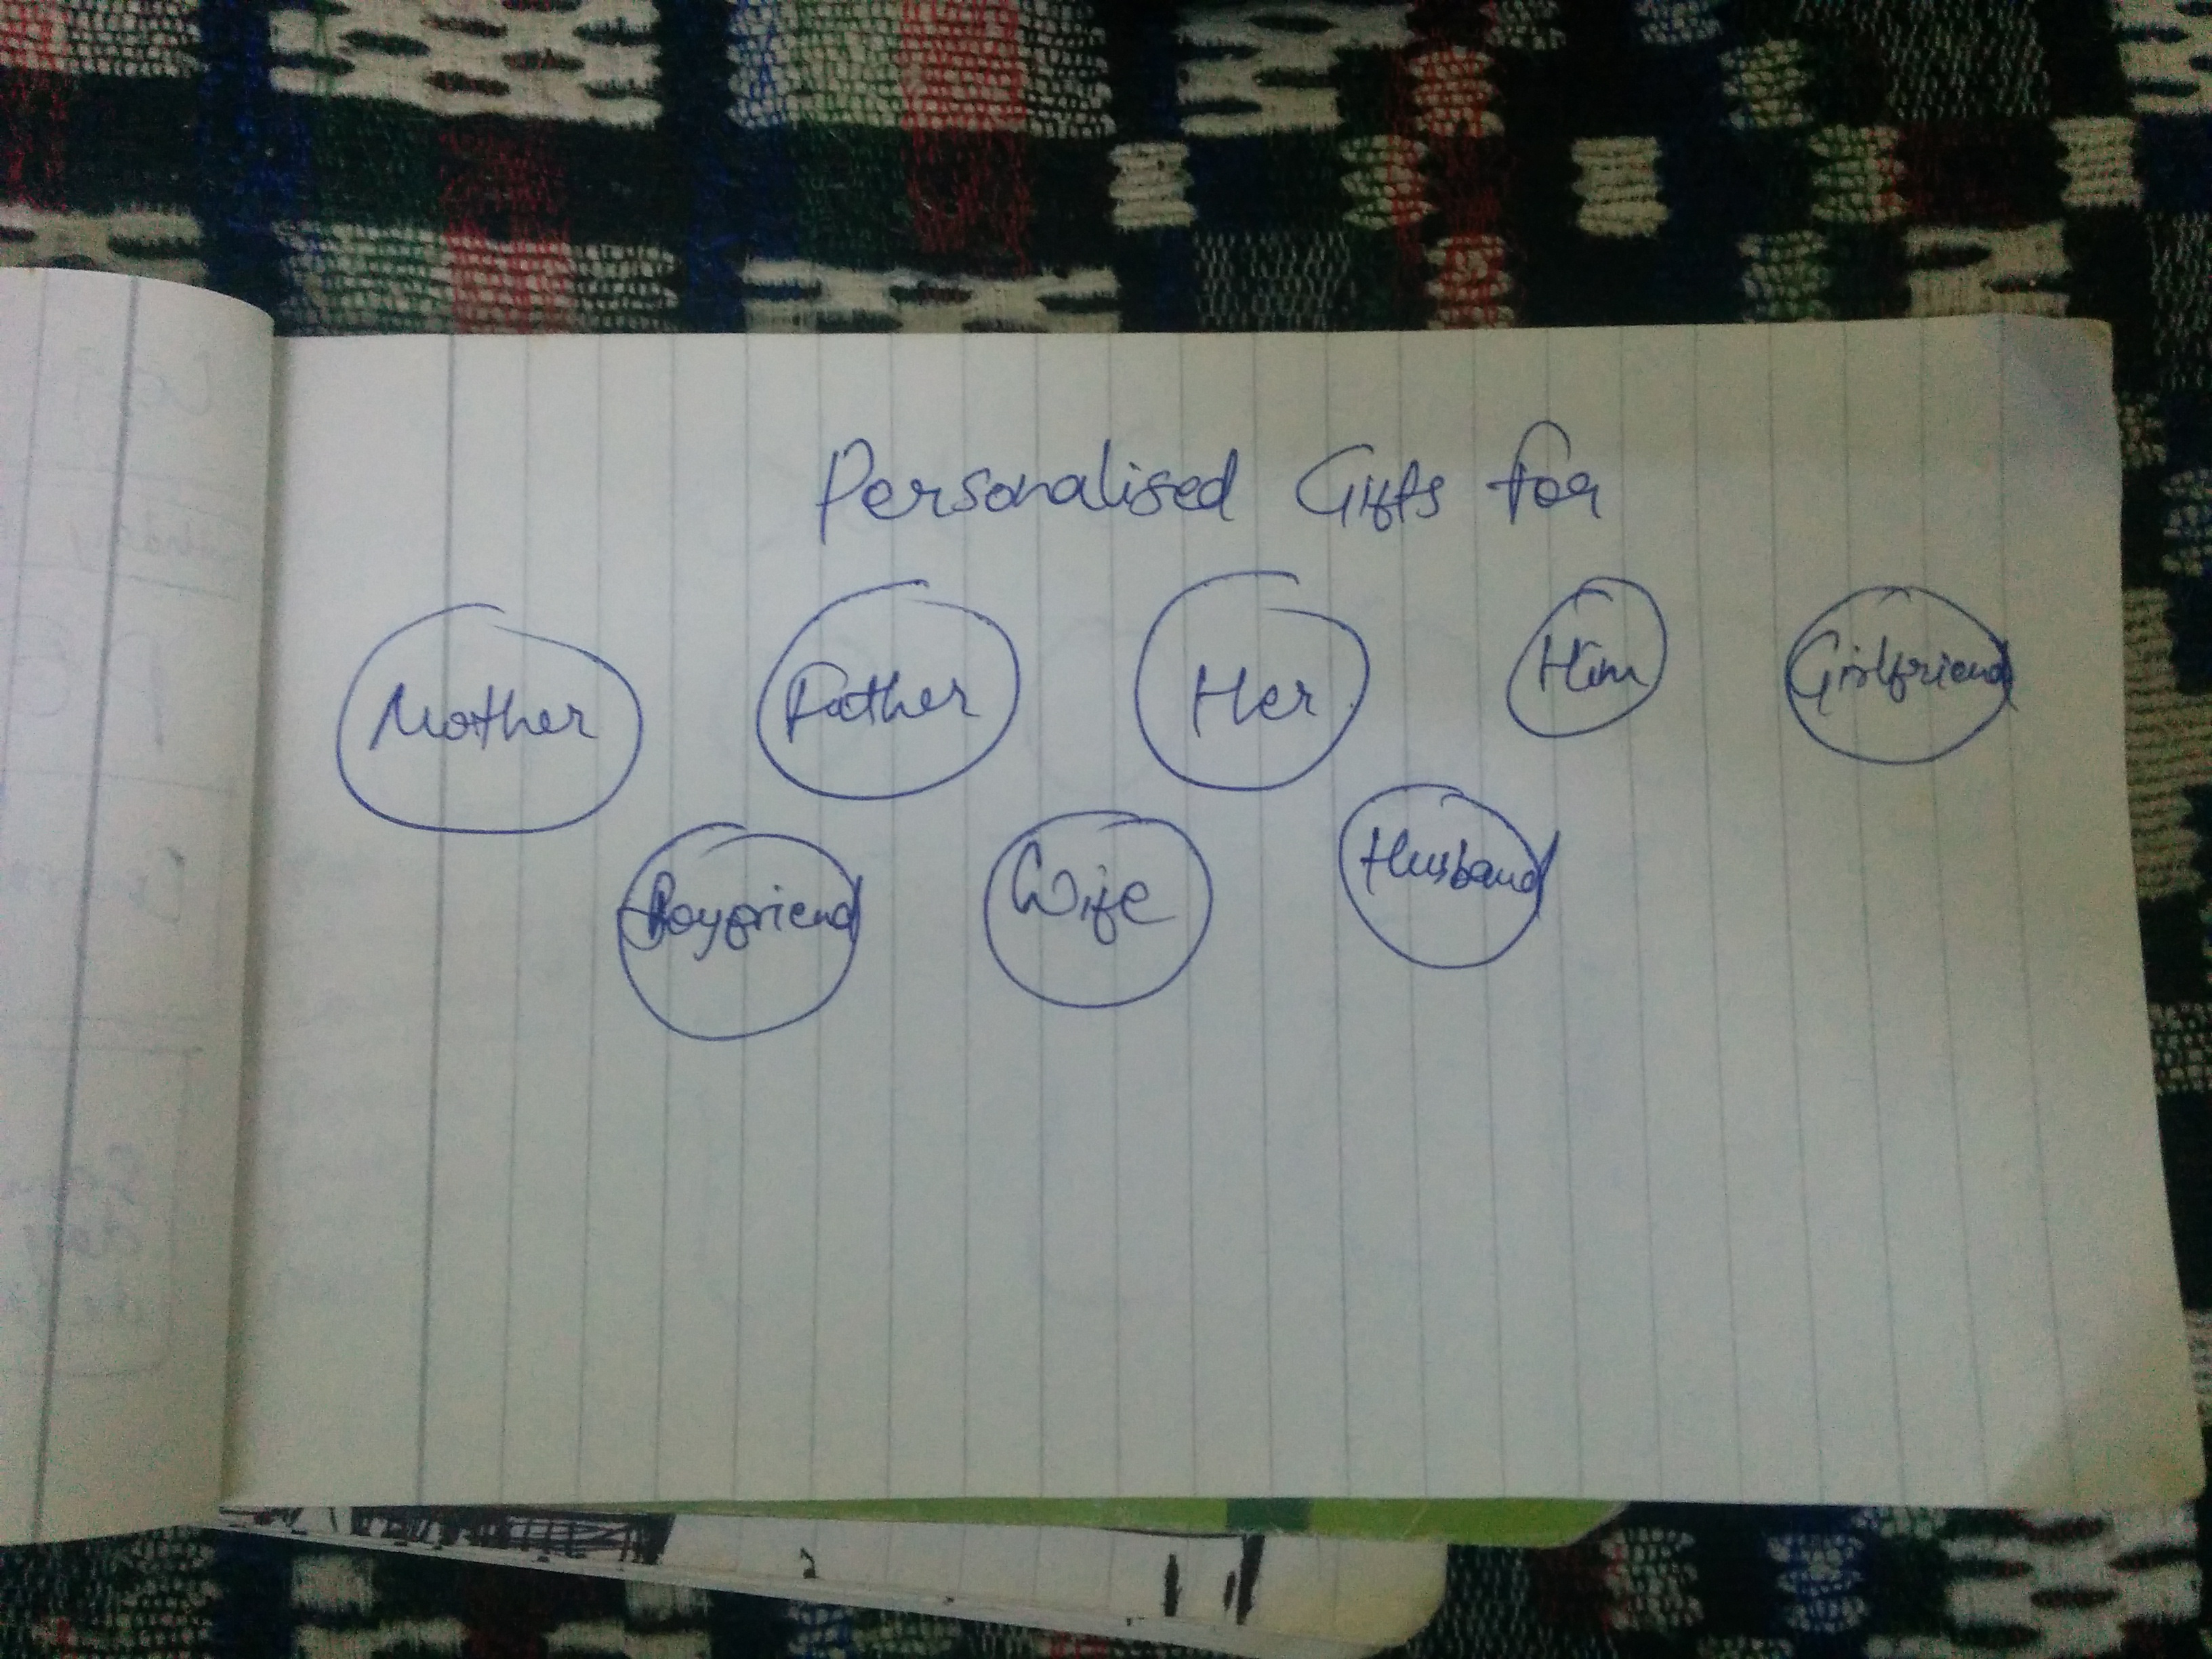 Personalised Gifts for
Mother Father Her Him Girlfriend
Boyfriend Wife Husband